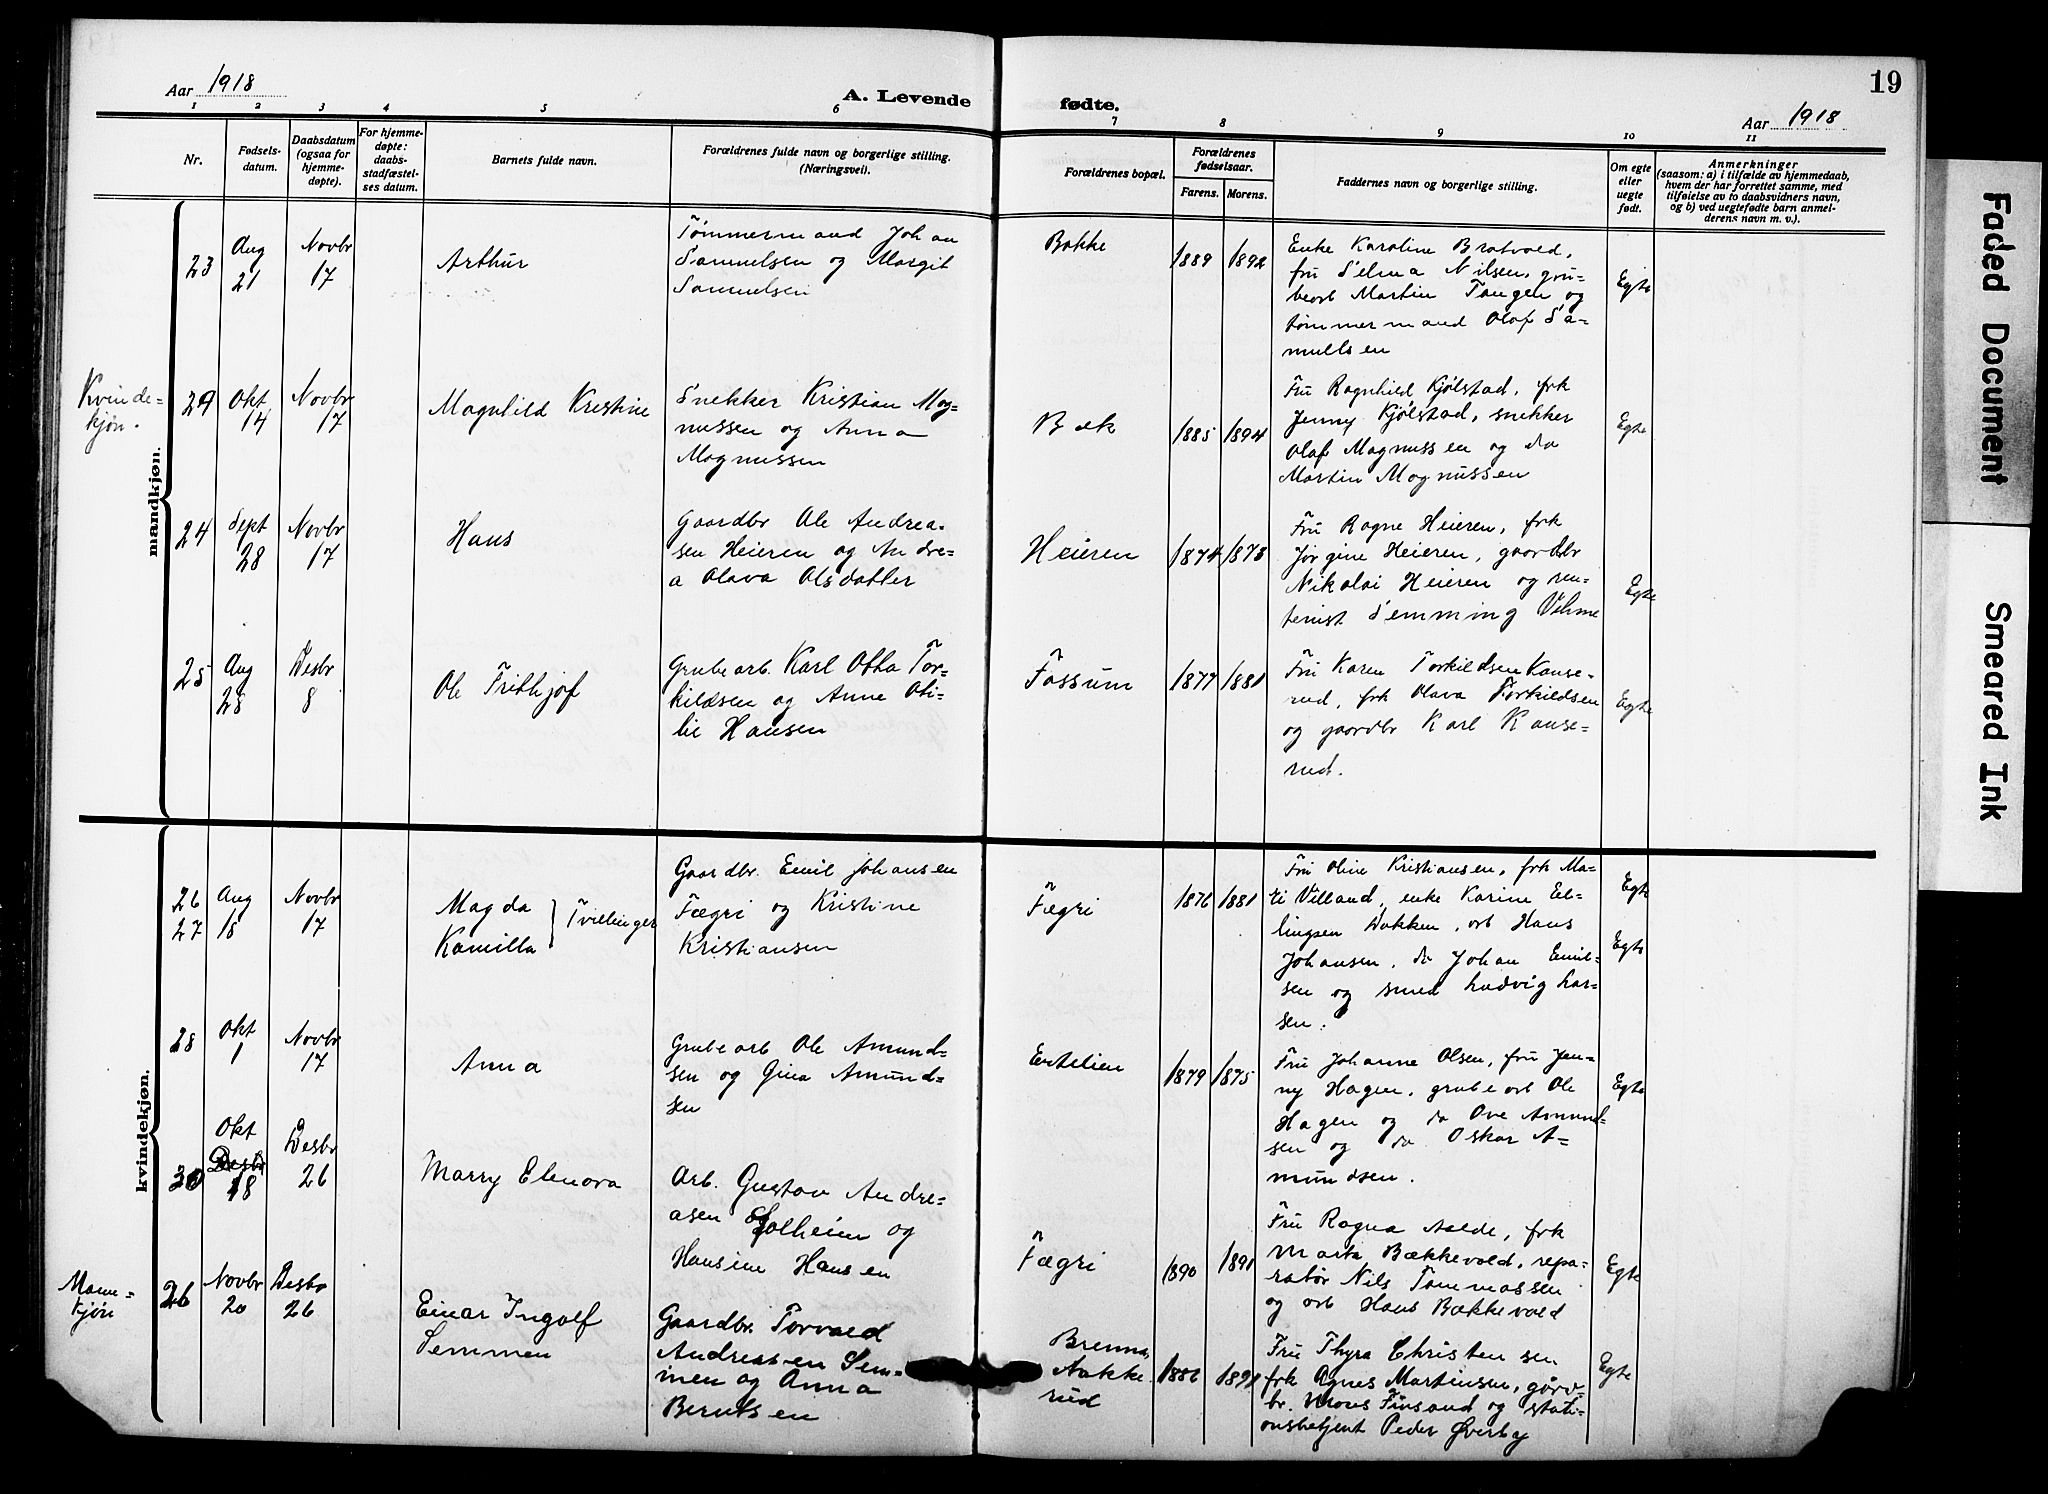 19
Aar 1918
A. Levende
fødte.
Aar 1918
1 2 3 4 5 6 7 8 9 10 11
Nr.
Fødsels-
datum.
Daabsdatum
(ogsaa for
hjemme-
døpte).
For hjemme-
døpte:
daabs-
stadfæstel-
ses datum.
Barnets fulde navn.
Forældrenes fulde navn og borgerlige stilling.
(Næringsvei).
Forældrenes bopæl.
Forældrenes
fødselsaar.
Farens. Morens.
Faddernes navn og borgerlige stilling.
Om egte
eller
uegte
født.
Anmerkninger
(saasom: a) i tilfælde av hjemmedaab,
hvem der har forrettet samme, med
tilføielse av to daabsvidners navn,
og b) ved uegtefødte barn anmel-
derens navn m. v.).
mandkjøn.
23
Aug
21
Novbr
17
Arthur
Tømmermand Johan
Samuelsen og Margit
Samuelsen
Bakke
1889 1892
Enke Karoline Bratvold,
fru Selma Nilsen, gru-
bearb Martin Tangen og
tømmermand Olaf Sa-
muelsen
Egte
Kvinde-
kjøn.
29
Okt
14
Novbr
17
Magnhild Kristine
Snekker Kristian Mag-
nussen og Anna
Magnussen
Bæk
1885 1894
Fru Ragnhild Kjølstad, frk
Jenny Kjølstad, snekker
Olaf Magnussen og do
Martin Magnussen
Egte
24
Sept
28
Novbr
17
Hans
Gaardbr Ole Andrea-
sen Heieren og Andre-
a Olava Olsdatter
Heieren
1874 1873
Fru Ragne Heieren, frk
Jørgine Heieren, gaardbr
Nikolai Heieren og ren-
tenist Semming Vihme
Egte
25
Aug
28
Desbr
8
Ole Frithjof
Grubearb. Karl Otto Tor-
kildsen og Anne Oti-
lie Hansen
Fossum
1877 1881
Fru Karen Torkildsen Kause-
rud, frk Olava Torkildsen
og gaardbr Karl Kause-
rud.
Egte
kvindekjøn.
26
27
Aug
18
Novbr
17
Magda
Kamilla
Tvillinger
Gaardbr. Emil Johansen
Fægri og Kristine
Kristiansen
Fægri
1876 1881
Fru Oline Kristiansen, frk Ma-
ti Villand, enke Karine El-
lingsen Dakken, arb Hans
Johansen, do Johan Emil-
sen og smed Ludvig Lar-
sen.
Egte
Egte
28
Okt
1
Novbr
17
Anna
Grubearb Ole Amund-
sen og Gina Amund-
sen
Ertelien
1879 1875
Fru Johanne Olsen, fru Jen-
ny Hagen, grubearb Ole
Hagen og do Ove Amund-
sen og do Oskar A-
mundsen.
Egte
30
Okt
Desbr
18
Desbr
26
Marry Elenora
Arb. Gustav Andre-
asen Solheim og
Hansine Hansen
Fægri
1890 1891
Fru Ragna Aalde, frk
Marta Bækkevold, repa-
ratør Nils Tommassen
og arb Hans Bækkevold
Egte
Mand-
kjøn
26
Novbr
20
Desbr
26
Einar Ingolf
Semmen
Gaardbr. Torvald
Andreassen Sem-
men og Anna
Berntsen
Bremna,
Aakke-
rud
1886 1891
Fru Thyra Christensen
frk Agnes Martinsen, gårv-
br. Mons Finsand og stati-
onsbetjent Peder Øverby
Egte
Faded Document
Smeared Ink